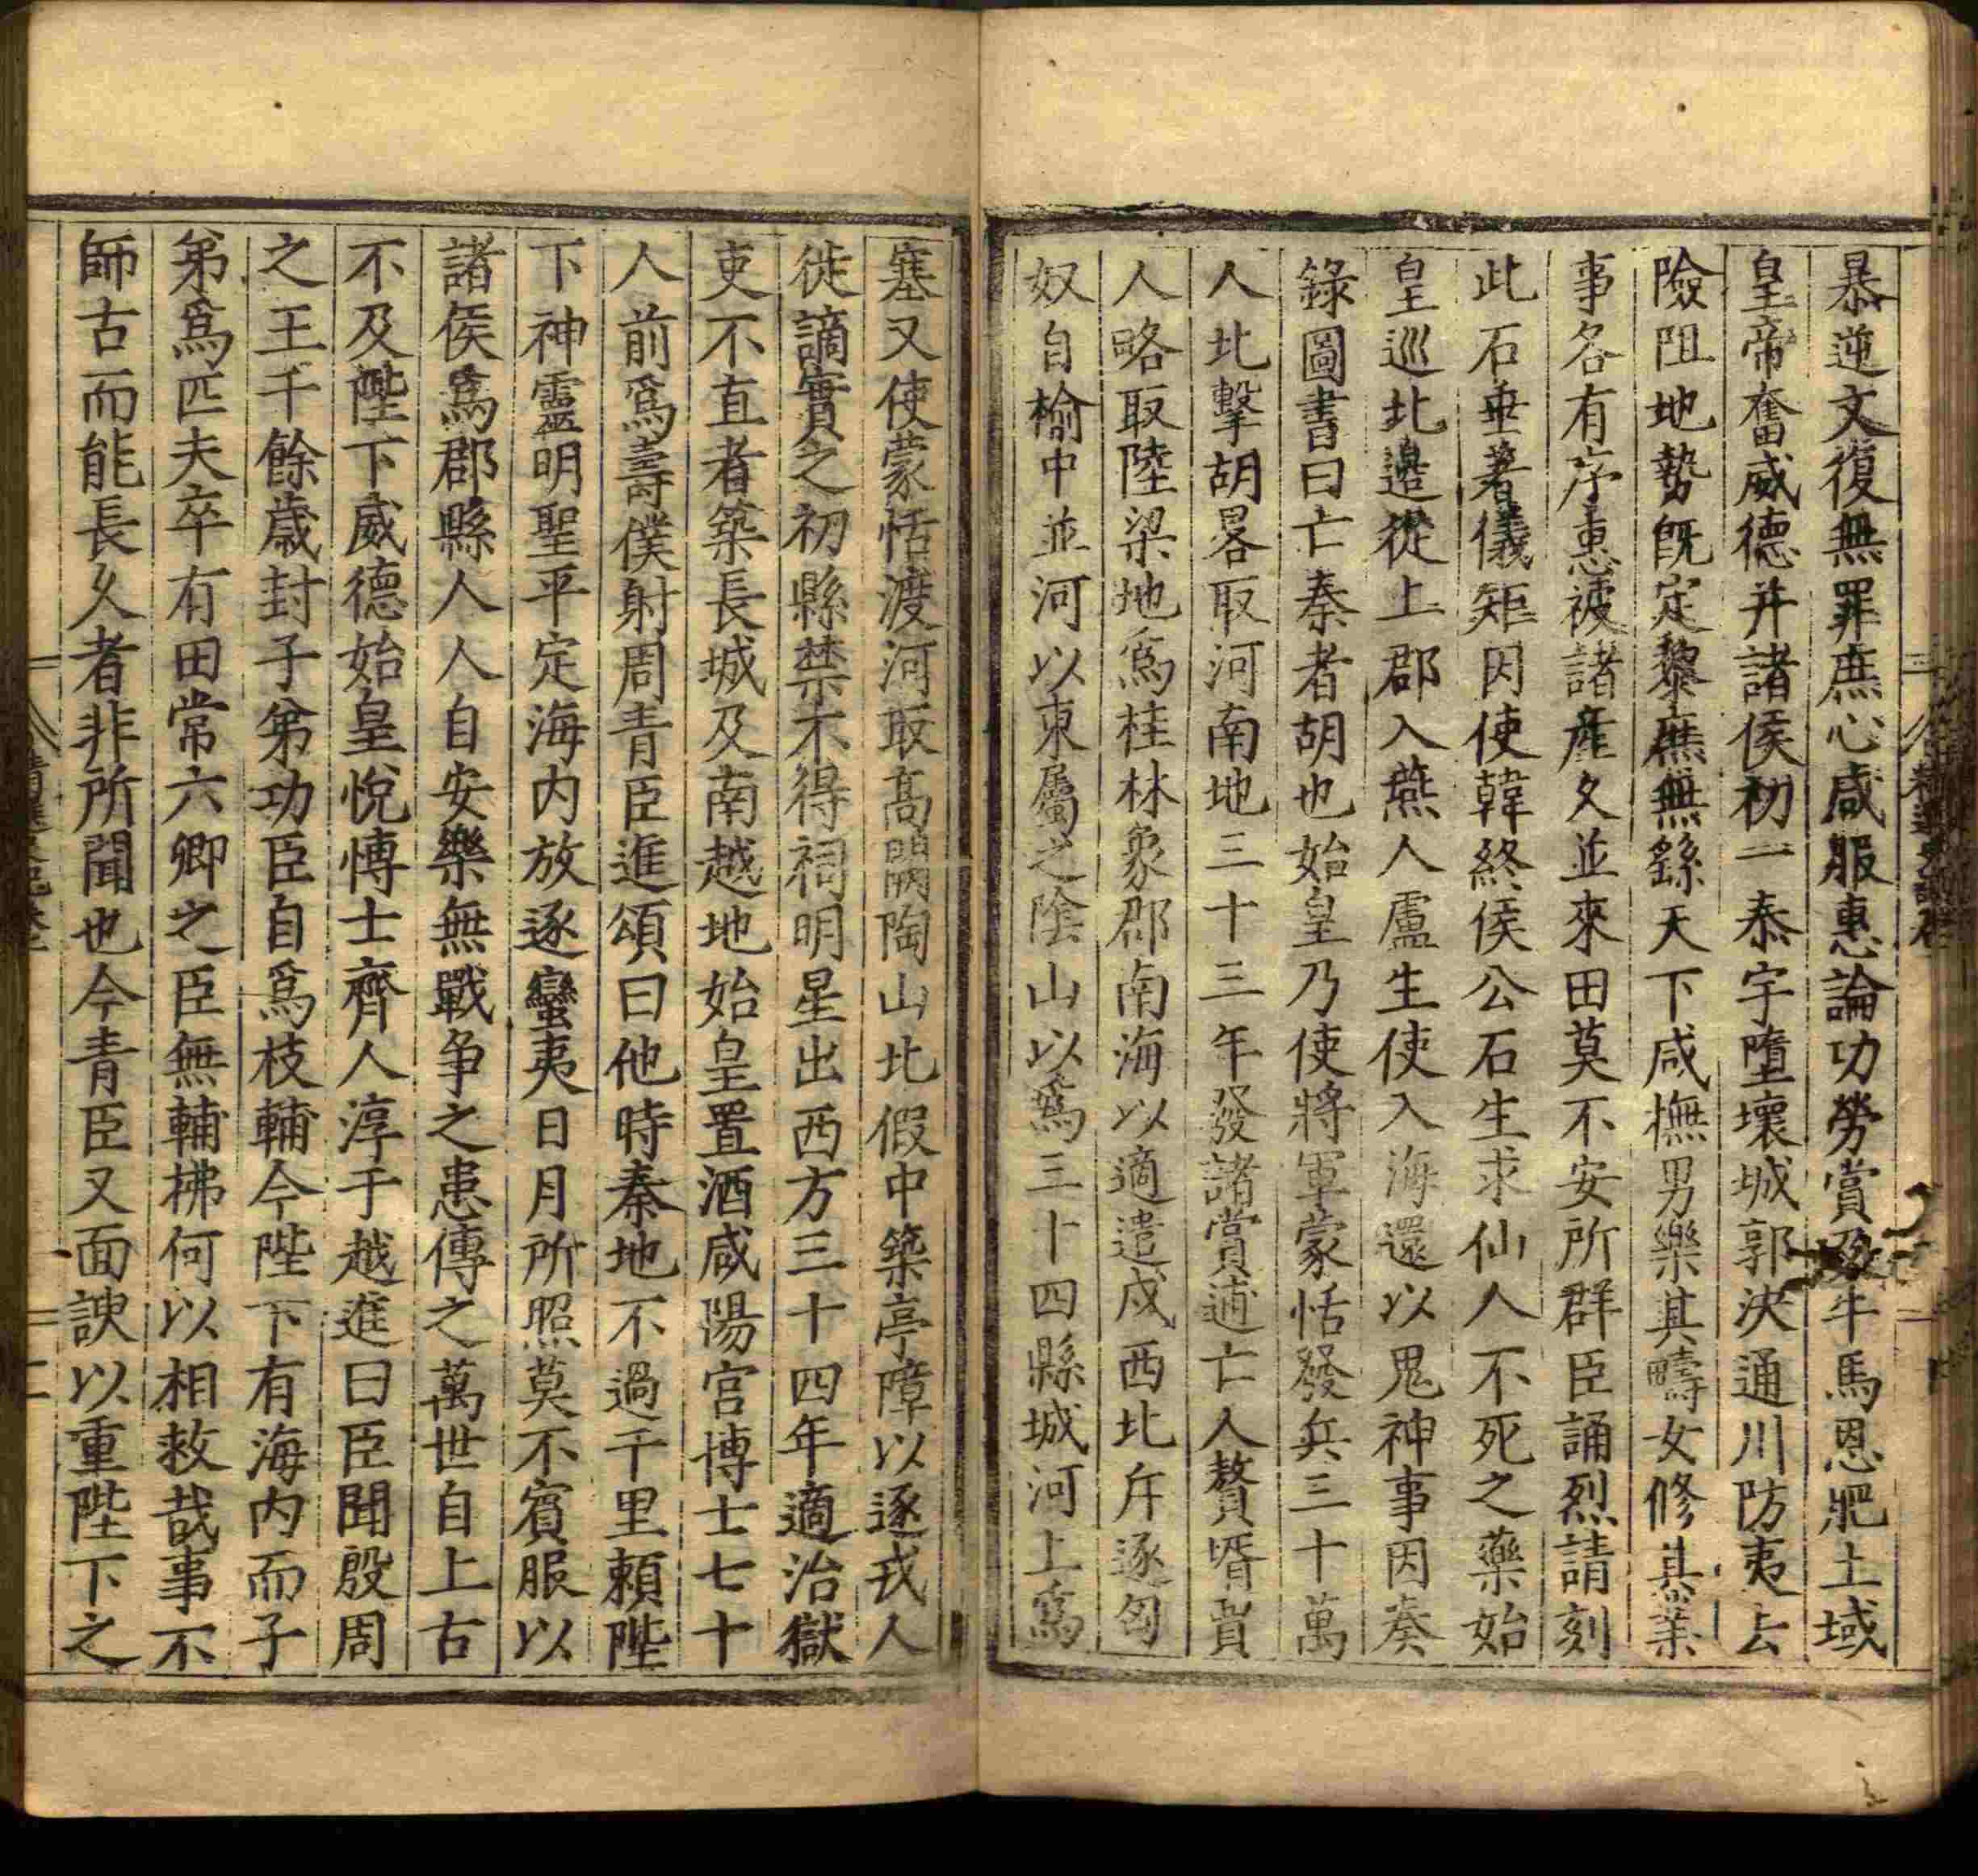 暴逆文復無罪庶心咸服惠論功勞賞及牛馬恩肥土域
皇帝奮威德并諸侯初一泰宇墮壞城郭決通川防夷去
險阻地勢既定黎庶無繇天下咸撫男樂其疇女修其業
事各有序惠被諸產久並來田莫不安所群臣誦烈請刻
此石垂著儀矩因使韓終侯公石生求仙人不死之藥始
皇巡北邉從上郡入燕人盧生使入海還以鬼神事因奏
錄圖書曰亡秦者胡也始皇乃使將軍蒙恬發兵三十萬
人北擊胡畧取河南地三十三年發諸嘗逋亡人贅壻賈
人略取陸梁地爲桂林象郡南海以適遣戍西北斥逐匈
奴自榆中並河以東屬之陰山以爲三十四縣城河上爲
塞又使蒙恬渡河取高闕陶山北假中築亭障以逐戎人
徙謫實之初縣禁不得祠明星出西方三十四年適治獄
吏不直者築長城及南越地始皇置酒咸陽宫博士七十
人前爲壽僕射周青臣進頌曰他時秦地不過千里頼陛
下神靈明聖平定海内放逐蠻夷日月所照莫不賓服以
諸侯爲郡縣人人自安樂無戰争之患傳之萬世自上古
不及陛下威德始皇悅博士齊人淳于越進曰臣聞殷周
之王千餘歲封子弟功臣自爲枝輔今陛下有海内而子
弟爲匹夫卒有田常六卿之臣無輔拂何以相救哉事不
師古而能長久者非所聞也今青臣又面諛以重陛下之